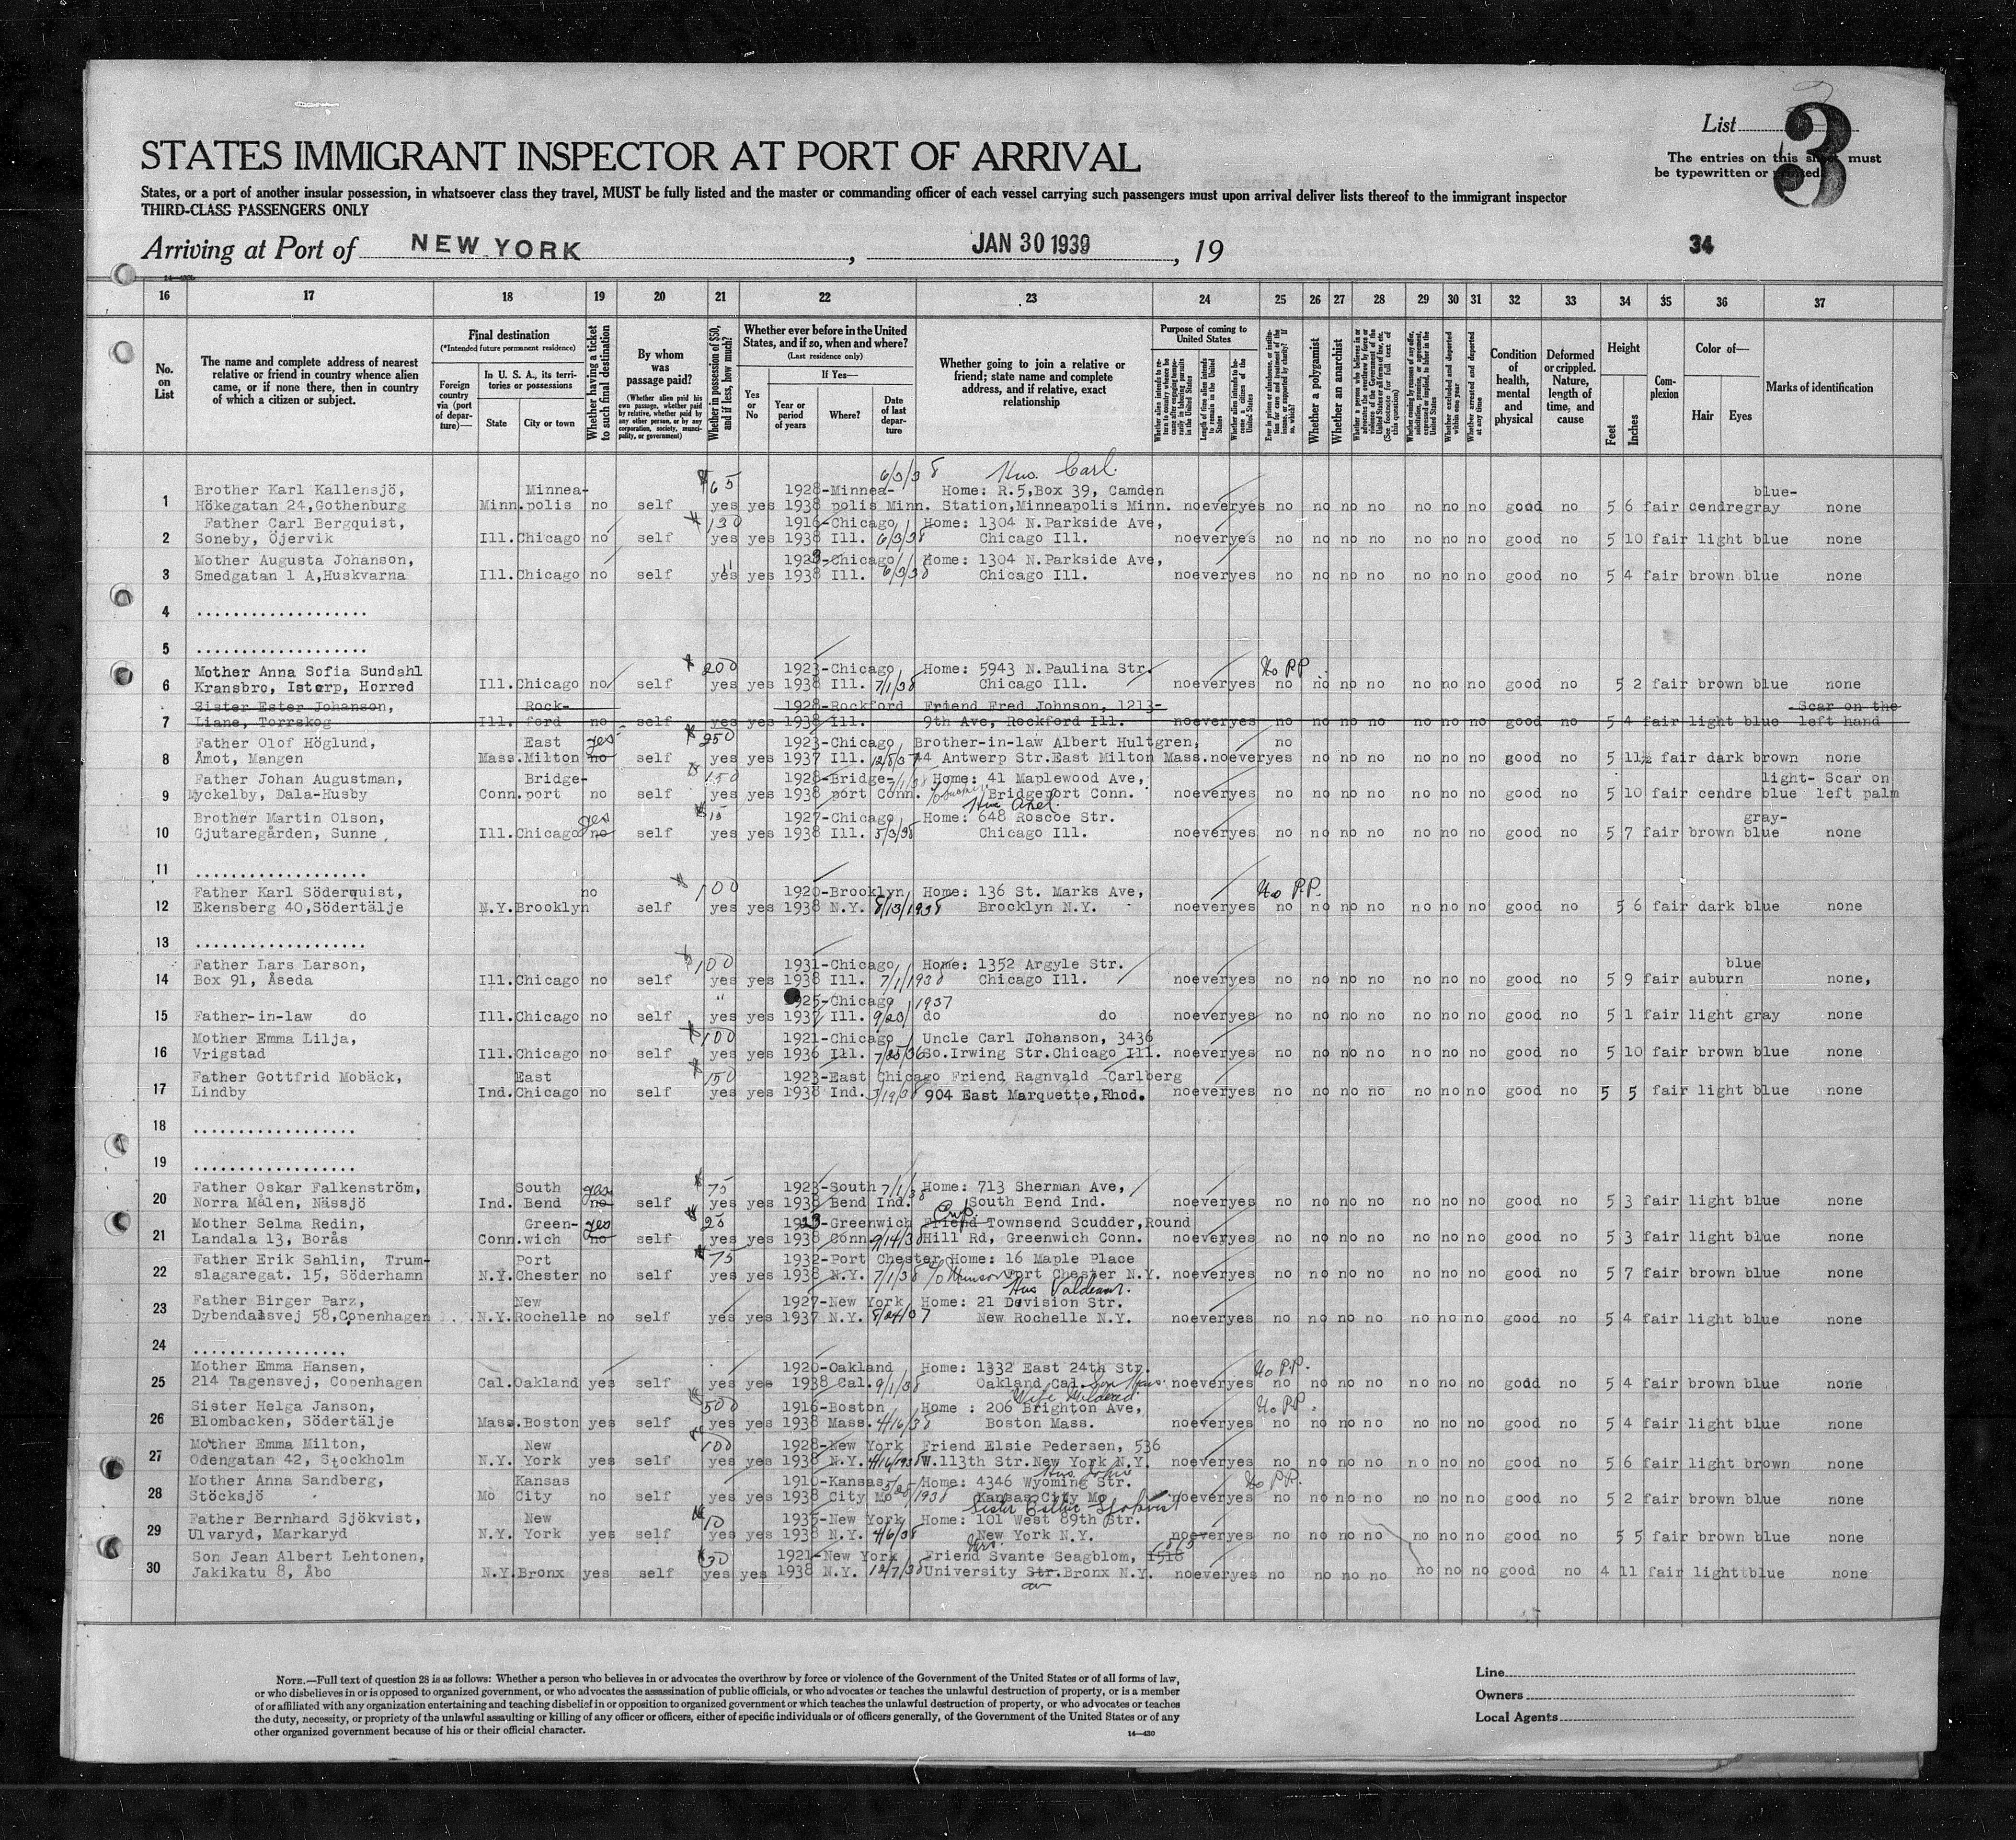 List
3
The entries on this sheet must
be typewritten or printed.
STATES IMMIGRANT INSPECTOR AT PORT OF ARRIVAL
States, or a port of another insular possession, in whatsoever class they travel, MUST be fully listed and the master or commanding officer of each vessel carrying such passengers must upon arrival deliver lists thereof to the immigrant inspector
THIRD-CLASS PASSENGERS ONLY
Arriving at Port of NEW YORK, JAN 30 1939, 19
34
16 17 18 19 20 21 22 23 24 25 26 27 28 29 30 31 32 33 34 35 36 37
No. on List
The name and complete address of nearest relative or friend in country whence alien came, or if none there, then in country of which a citizen or subject.
Final destination
(*Intended future permanent residence)
Foreign country via (port of departure)—
In U. S. A., its territories or possessions
State City or town
Whether having a ticket to such final destination
By whom was passage paid?
(Whether alien paid his own passage, whether paid by relative, whether paid by any other person, or by any corporation, society, municipality, or government)
Whether in possession of $50, and if less, how much?
Whether ever before in the United States, and if so, when and where?
(Last residence only)
Yes or No
If Yes—
Year or period of years Where? Date of last departure
Whether going to join a relative or friend; state name and complete address, and if relative, exact relationship
Purpose of coming to United States
Length of time alien intends to remain in the United States
Whether alien intends to become a citizen of the United States
Whether a polygamist
Whether an anarchist
Whether excluded and deported within one year
Whether arrested and deported at any time
Condition of health, mental and physical
Deformed or crippled. Nature, length of time, and cause
Height
Feet Inches
Complexion
Color of—
Hair Eyes
Marks of identification
6/3/38 Hus. Carl.
Brother Karl Kallensjö, Minnea- $65 1928-Minnea- Home: R.5,Box 39, Camden blue-
1 Hökegatan 24,Gothenburg Minn. polis no self yes yes 1938 polis Minn. Station,Minneapolis Minn. no ever yes no no no no no no no good no 5 6 fair cendre gray none
Father Carl Bergquist, 130 1916-Chicago Home: 1304 N.Parkside Ave,
2 Soneby, Öjervik Ill. Chicago no self yes yes 1938 Ill. 6/3/38 Chicago Ill. no ever yes no no no no no no no good no 5 10 fair light blue none
Mother Augusta Johanson, 1923-Chicago Home: 1304 N.Parkside Ave,
3 Smedgatan 1 A,Huskvarna Ill. Chicago no self yes yes 1938 Ill. 6/3/38 Chicago Ill. no ever yes no no no no no no no good no 5 4 fair brown blue none
4 ...................
5 ...................
Mother Anna Sofia Sundahl 200 1923-Chicago Home: 5943 N.Paulina Str. No P.P.
6 Kransbro, Istorp, Horred Ill. Chicago no self yes yes 1938 Ill. 7/1/38 Chicago Ill. no ever yes no no no no no no no good no 5 2 fair brown blue none
Sister Ester Johanson, Rock- 1928-Rockford Friend Fred Johnson, 1213- Scar on the
7 Liane, Torrskog Ill. ford no self yes yes 1938 Ill. 9th Ave, Rockford Ill. no ever yes no no no no no no no good no 5 4 fair light blue left hand
Father Olof Höglund, East yes 250 1923-Chicago Brother-in-law Albert Hultgren, no
8 Åmot, Mangen Mass. Milton no self yes yes 1937 Ill. 12/8/37 44 Antwerp Str.East Milton Mass. no ever yes no no no no no no no good no 5 11½ fair dark brown none
Father Johan Augustman, Bridge- 150 1928-Bridge- 7/1/38 Home: 41 Maplewood Ave, light- Scar on
9 Myckelby, Dala-Husby Conn. port no self yes yes 1938 port Conn. Bridgeport Conn. no ever yes no no no no no no no good no 5 10 fair cendre blue left palm
Hus Axel.
Brother Martin Olson, yes 15 1927-Chicago Home: 648 Roscoe Str. gray-
10 Gjutaregården, Sunne Ill. Chicago no self yes yes 1938 Ill. 5/3/38 Chicago Ill. no ever yes no no no no no no no good no 5 7 fair brown blue none
11 ...................
Father Karl Söderquist, no 100 1920-Brooklyn Home: 136 St. Marks Ave, No P.P.
12 Ekensberg 40,Södertälje N.Y. Brooklyn self yes yes 1938 N.Y. 8/13/1938 Brooklyn N.Y. no ever yes no no no no no no no good no 5 6 fair dark blue none
13 ...................
Father Lars Larson, 100 1931-Chicago Home: 1352 Argyle Str. blue
14 Box 91, Åseda Ill. Chicago no self yes yes 1938 Ill. 7/1/1938 Chicago Ill. no ever yes no no no no no no no good no 5 9 fair auburn none,
" 1925-Chicago 1937
15 Father-in-law do Ill. Chicago no self yes yes 1937 Ill. 9/23/ do do no ever yes no no no no no no no good no 5 1 fair light gray none
Mother Emma Lilja, 100 1921-Chicago Uncle Carl Johanson, 3436
16 Vrigstad Ill. Chicago no self yes yes 1936 Ill. 7/25/36 So.Irwing Str.Chicago Ill. no ever yes no no no no no no no good no 5 10 fair brown blue none
Father Gottfrid Mobäck, East 150 1923-East Chicago Friend Ragnvald Carlberg
17 Lindby Ind. Chicago no self yes yes 1938 Ind. 3/19/38 904 East Marquette,Rhod. no ever yes no no no no no no no good no 5 5 fair light blue none
18 ..................
19 ..................
Father Oskar Falkenström, South yes 75 1923-South 7/1/38 Home: 713 Sherman Ave,
20 Norra Målen, Nässjö Ind. Bend no self yes yes 1938 Bend Ind. South Bend Ind. no ever yes no no no no no no no good no 5 3 fair light blue none
Emp.
Mother Selma Redin, Green- yes 25 1923-Greenwich Friend Townsend Scudder,Round
21 Landala 13, Borås Conn. wich no self yes yes 1938 Conn. 9/14/38 Hill Rd, Greenwich Conn. no ever yes no no no no no no no good no 5 3 fair light blue none
Father Erik Sahlin, Trum- Port 75 1932-Port Chester Home: 16 Maple Place
22 slagaregat. 15, Söderhamn N.Y. Chester no self yes yes 1938 N.Y. 7/1/38 c/o Munson Port Chester N.Y. no ever yes no no no no no no no good no 5 7 fair brown blue none
Hus Valdemar.
Father Birger Parz, New 1927-New York Home: 21 Devision Str.
23 Dybendalsvej 58,Copenhagen N.Y. Rochelle no self yes yes 1937 N.Y. 8/24/37 New Rochelle N.Y. no ever yes no no no no no no no good no 5 4 fair light blue none
24 .................
Mother Emma Hansen, 1920-Oakland Home: 1332 East 24th Str. No P.P.
25 214 Tagensvej, Copenhagen Cal. Oakland yes self yes yes 1938 Cal. 9/1/38 Oakland Cal. no ever yes no no no no no no no good no 5 4 fair brown blue none
Wife Mildred.
Sister Helga Janson, 500 1916-Boston Home : 206 Brighton Ave, No P.P.
26 Blombacken, Södertälje Mass. Boston yes self yes yes 1938 Mass. 4/16/38 Boston Mass. no ever yes no no no no no no no good no 5 4 fair light blue none
Mother Emma Milton, New 100 1928-New York Friend Elsie Pedersen, 536
27 Odengatan 42, Stockholm N.Y. York yes self yes yes 1938 N.Y. 4/16/1938 W.113th Str.New York N.Y. no ever yes no no no no no no no good no 5 6 fair light brown none
Mother Anna Sandberg, Kansas 1916-Kansas 5/28/1938 Home: 4346 Wyoming Str. No P.P.
28 Stöcksjö Mo City no self yes yes 1938 City Mo Kansas City Mo no ever yes no no no no no no no good no 5 2 fair brown blue none
Sister Sjokvist
Father Bernhard Sjökvist, New 10 1935-New York Home: 101 West 89th Str.
29 Ulvaryd, Markaryd N.Y. York yes self yes yes 1938 N.Y. 4/6/38 New York N.Y. no ever yes no no no no no no no good no 5 5 fair brown blue none
Mrs.
Son Jean Albert Lehtonen, 30 1921-New York Friend Svante Seagblom, 1518
30 Jakikatu 8, Åbo N.Y. Bronx yes self yes yes 1938 N.Y. 12/7/38 University Str.Bronx N.Y. no ever yes no no no no no no no good no 4 11 fair light blue none
av
NOTE.—Full text of question 28 is as follows: Whether a person who believes in or advocates the overthrow by force or violence of the Government of the United States or of all forms of law,
or who disbelieves in or is opposed to organized government, or who advocates the assassination of public officials, or who advocates or teaches the unlawful destruction of property, or is a member
of or affiliated with any organization entertaining and teaching disbelief in or opposition to organized government or which teaches the unlawful destruction of property, or who advocates or teaches
the duty, necessity, or propriety of the unlawful assaulting or killing of any officer or officers, either of specific individuals or of officers generally, of the Government of the United States or of any
other organized government because of his or their official character.
14—430
Line
Owners
Local Agents